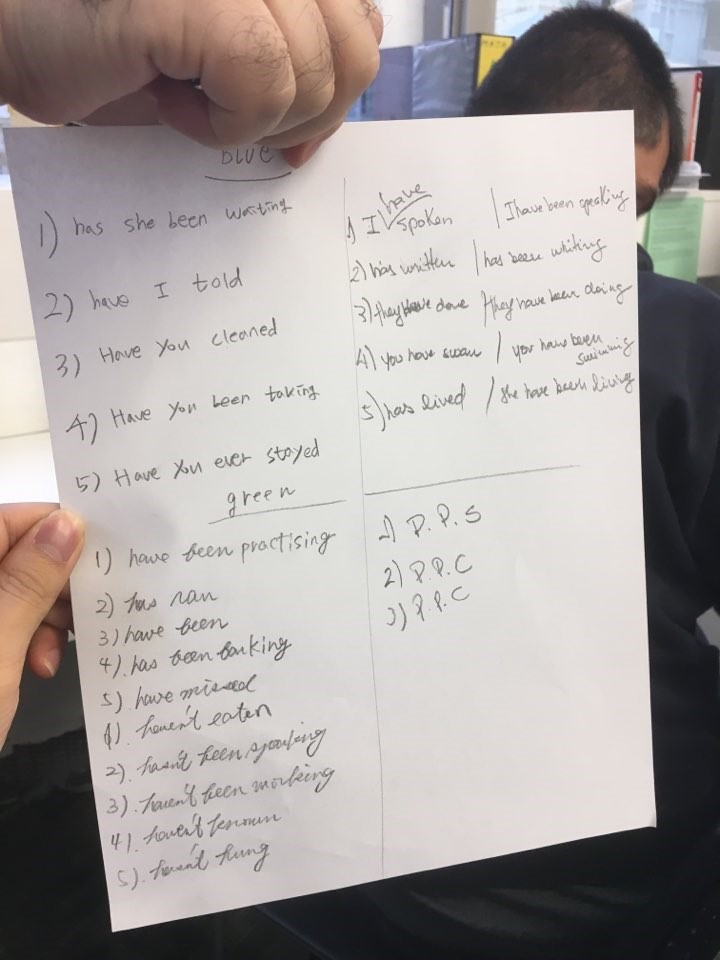 blue
1) has she been waiting
2) have I told
3) Have You cleaned
4) Have You been taking
5) Have You ever stayed
green
1) have been practising
2) has ran
3) have been
4). has been barking
5). have missed
1). haven't eaten
2). hasn't been speaking
3). haven't been working
4). haven't known
5). haven't hung
1) I have spoken / I have been speaking
2) has written / has been whiting
3) they have done / they have been doing
4) you have swam / you have been swimming
5) has lived / she have been living
1) P.P.S
2) P.P.C
3) P.P.C